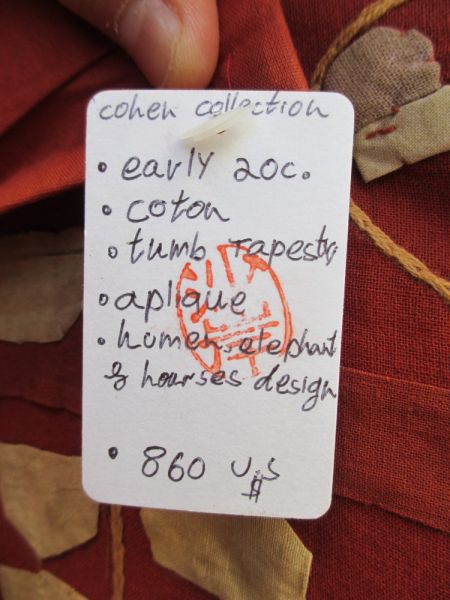 cohen collection
• early 20c.
• coton
• tumb Tapestry
• aplique
• humen, elephant
& hourses design
• 860 U$S